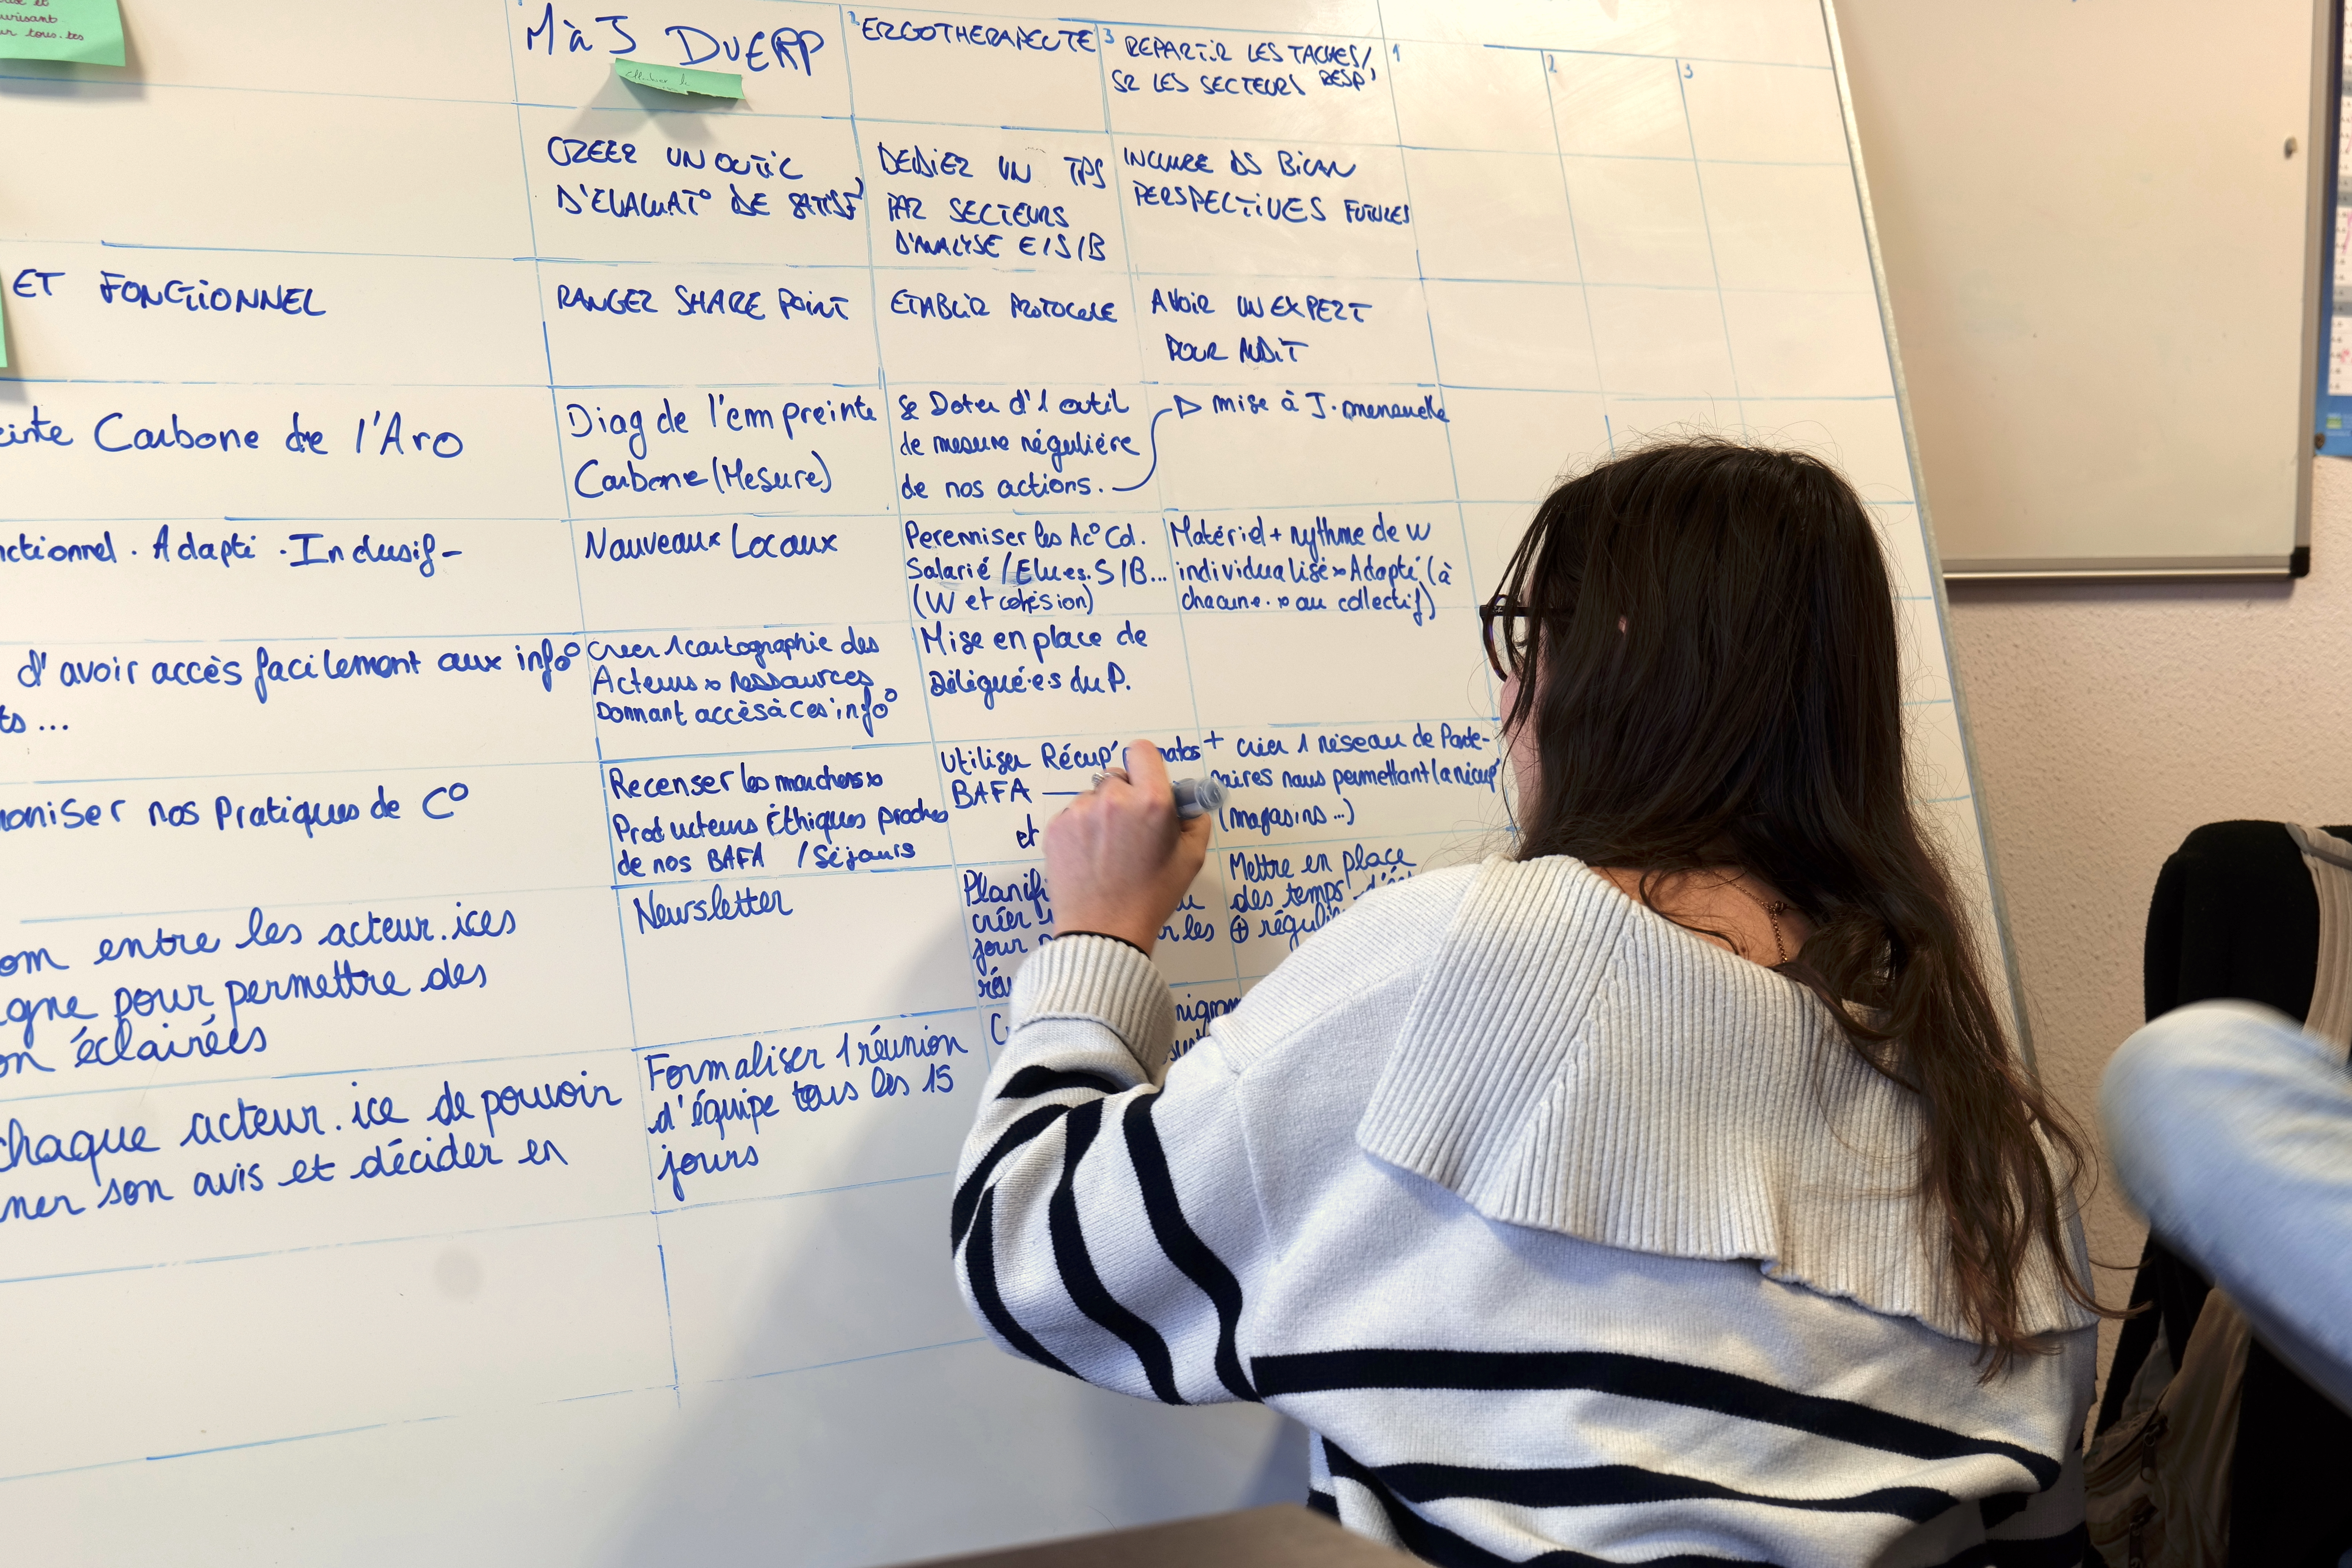 ur tous.tes
M à J DUERP
2 ERGOTHERAPEUTE
3 REPARTIR LES TACHES/
SR LES SECTEURS RESP'
1
2
3
CREER UN OUTIL
D'EVALUAT° DE SATISF'
DEDIER UN TPS
PAR SECTEURS
D'ANALYSE E/S/B
INCLURE DS BILAN
PERSPECTIVES FUTURES
ET FONCTIONNEL
RANGER SHARE POINT
ETABLIR PROTOCOLE
AVOIR UN EXPERT
POUR AUDIT
einte Carbone de l'Aro
Diag de l'empreinte
Carbone (Mesure)
Se Doter d'1 outil
de mesure régulière
de nos actions.
mise à J. mensuelle
nctionnel . Adapté . Inclusif -
Nouveaux Locaux
Perenniser les Ac° Col.
Salarié / Elu.es. S/B...
(W et cohésion)
Matériel + rythme de W
individualisé Adapté (à
chacun.e. au collectif)
d'avoir accès facilement aux info°
ts ...
Creer 1 cartographie des
Acteurs ressources
Donnant accès à ces info°
Mise en place de
Délégué.e.s du P.
oniser nos Pratiques de C°
Recenser les marchers
Producteurs Éthiques proches
de nos BAFA / Séjours
Utiliser Récup' matos
BAFA
et
+ créer 1 réseau de Parte-
naires nous permettant la récup'
(magasins ...)
om entre les acteur.ices
igne pour permettre des
on éclairées
Newsletter
Planifi
créer
jour
r les
Mettre en place
des temps
⊕ réguli
chaque acteur.ice de pouvoir
ner son avis et décider en
Formaliser 1 réunion
d'équipe tous les 15
jours
nigram